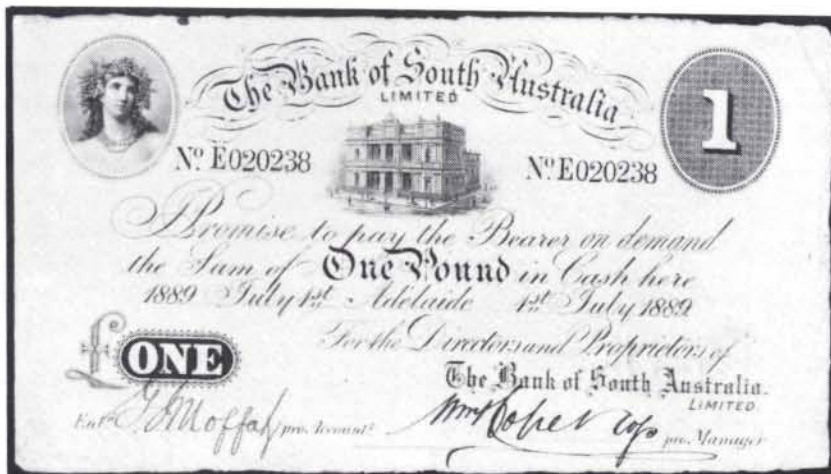 The Bank of South Australia
LIMITED
1
No. E020238 No. E020238
I Promise to pay the Bearer on demand
the Sum of One Pound in Cash here
1889 July 1st Adelaide 1st July 1889
For the Directors and Proprietors of
£ ONE
The Bank of South Australia.
LIMITED
Entd. Moffat pro. Accountt.
pro. Manager